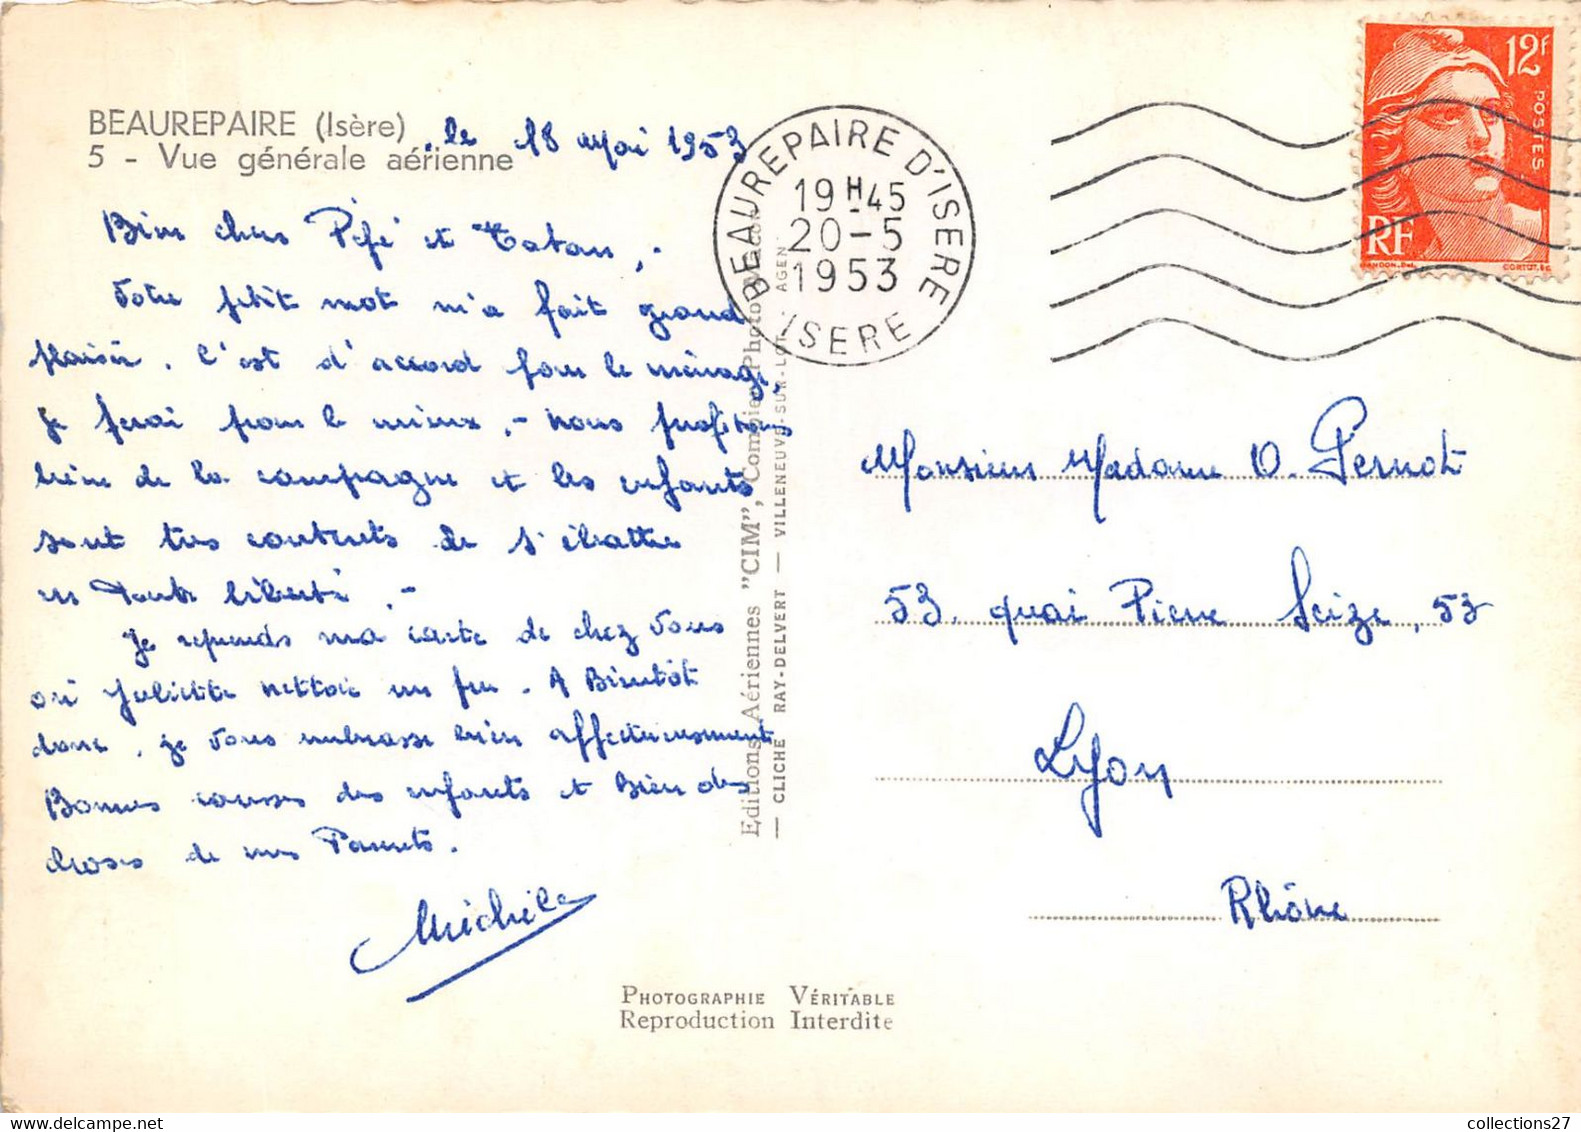 BEAUREPAIRE (Isère)
5 - Vue générale aérienne
le 18 Mai 1953
Bien chers Pépé et Tatan, -
Votre petit mot m'a fait grand
plaisir. C'est d'accord pour le ménage,
je ferai pour le mieux. - Nous profitons
bien de la campagne et les enfants
sont très contents de s'ébattre
en toute liberté. -
Je reprends ma carte de chez vous
où Juliette nettoie un peu. A Bientôt
donc, je vous embrasse bien affectueusement
Bonnes courses des enfants et Bien des
choses de mes Parents.
Michèle
Editions Aériennes "CIM", Combier Photo Macon
— CLICHÉ RAY-DELVERT — VILLENEUVE-SUR-LOT AGEN
PHOTOGRAPHIE VÉRITABLE
Reproduction Interdite
BEAUREPAIRE D'ISERE
19H45
20-5
1953
ISERE
12F
POSTES
RF
GANDON.DEL.
CORTOT.SC
Monsieur Madame O. Pernot
53, quai Pierre Seize, 53
Lyon
Rhône
collections27